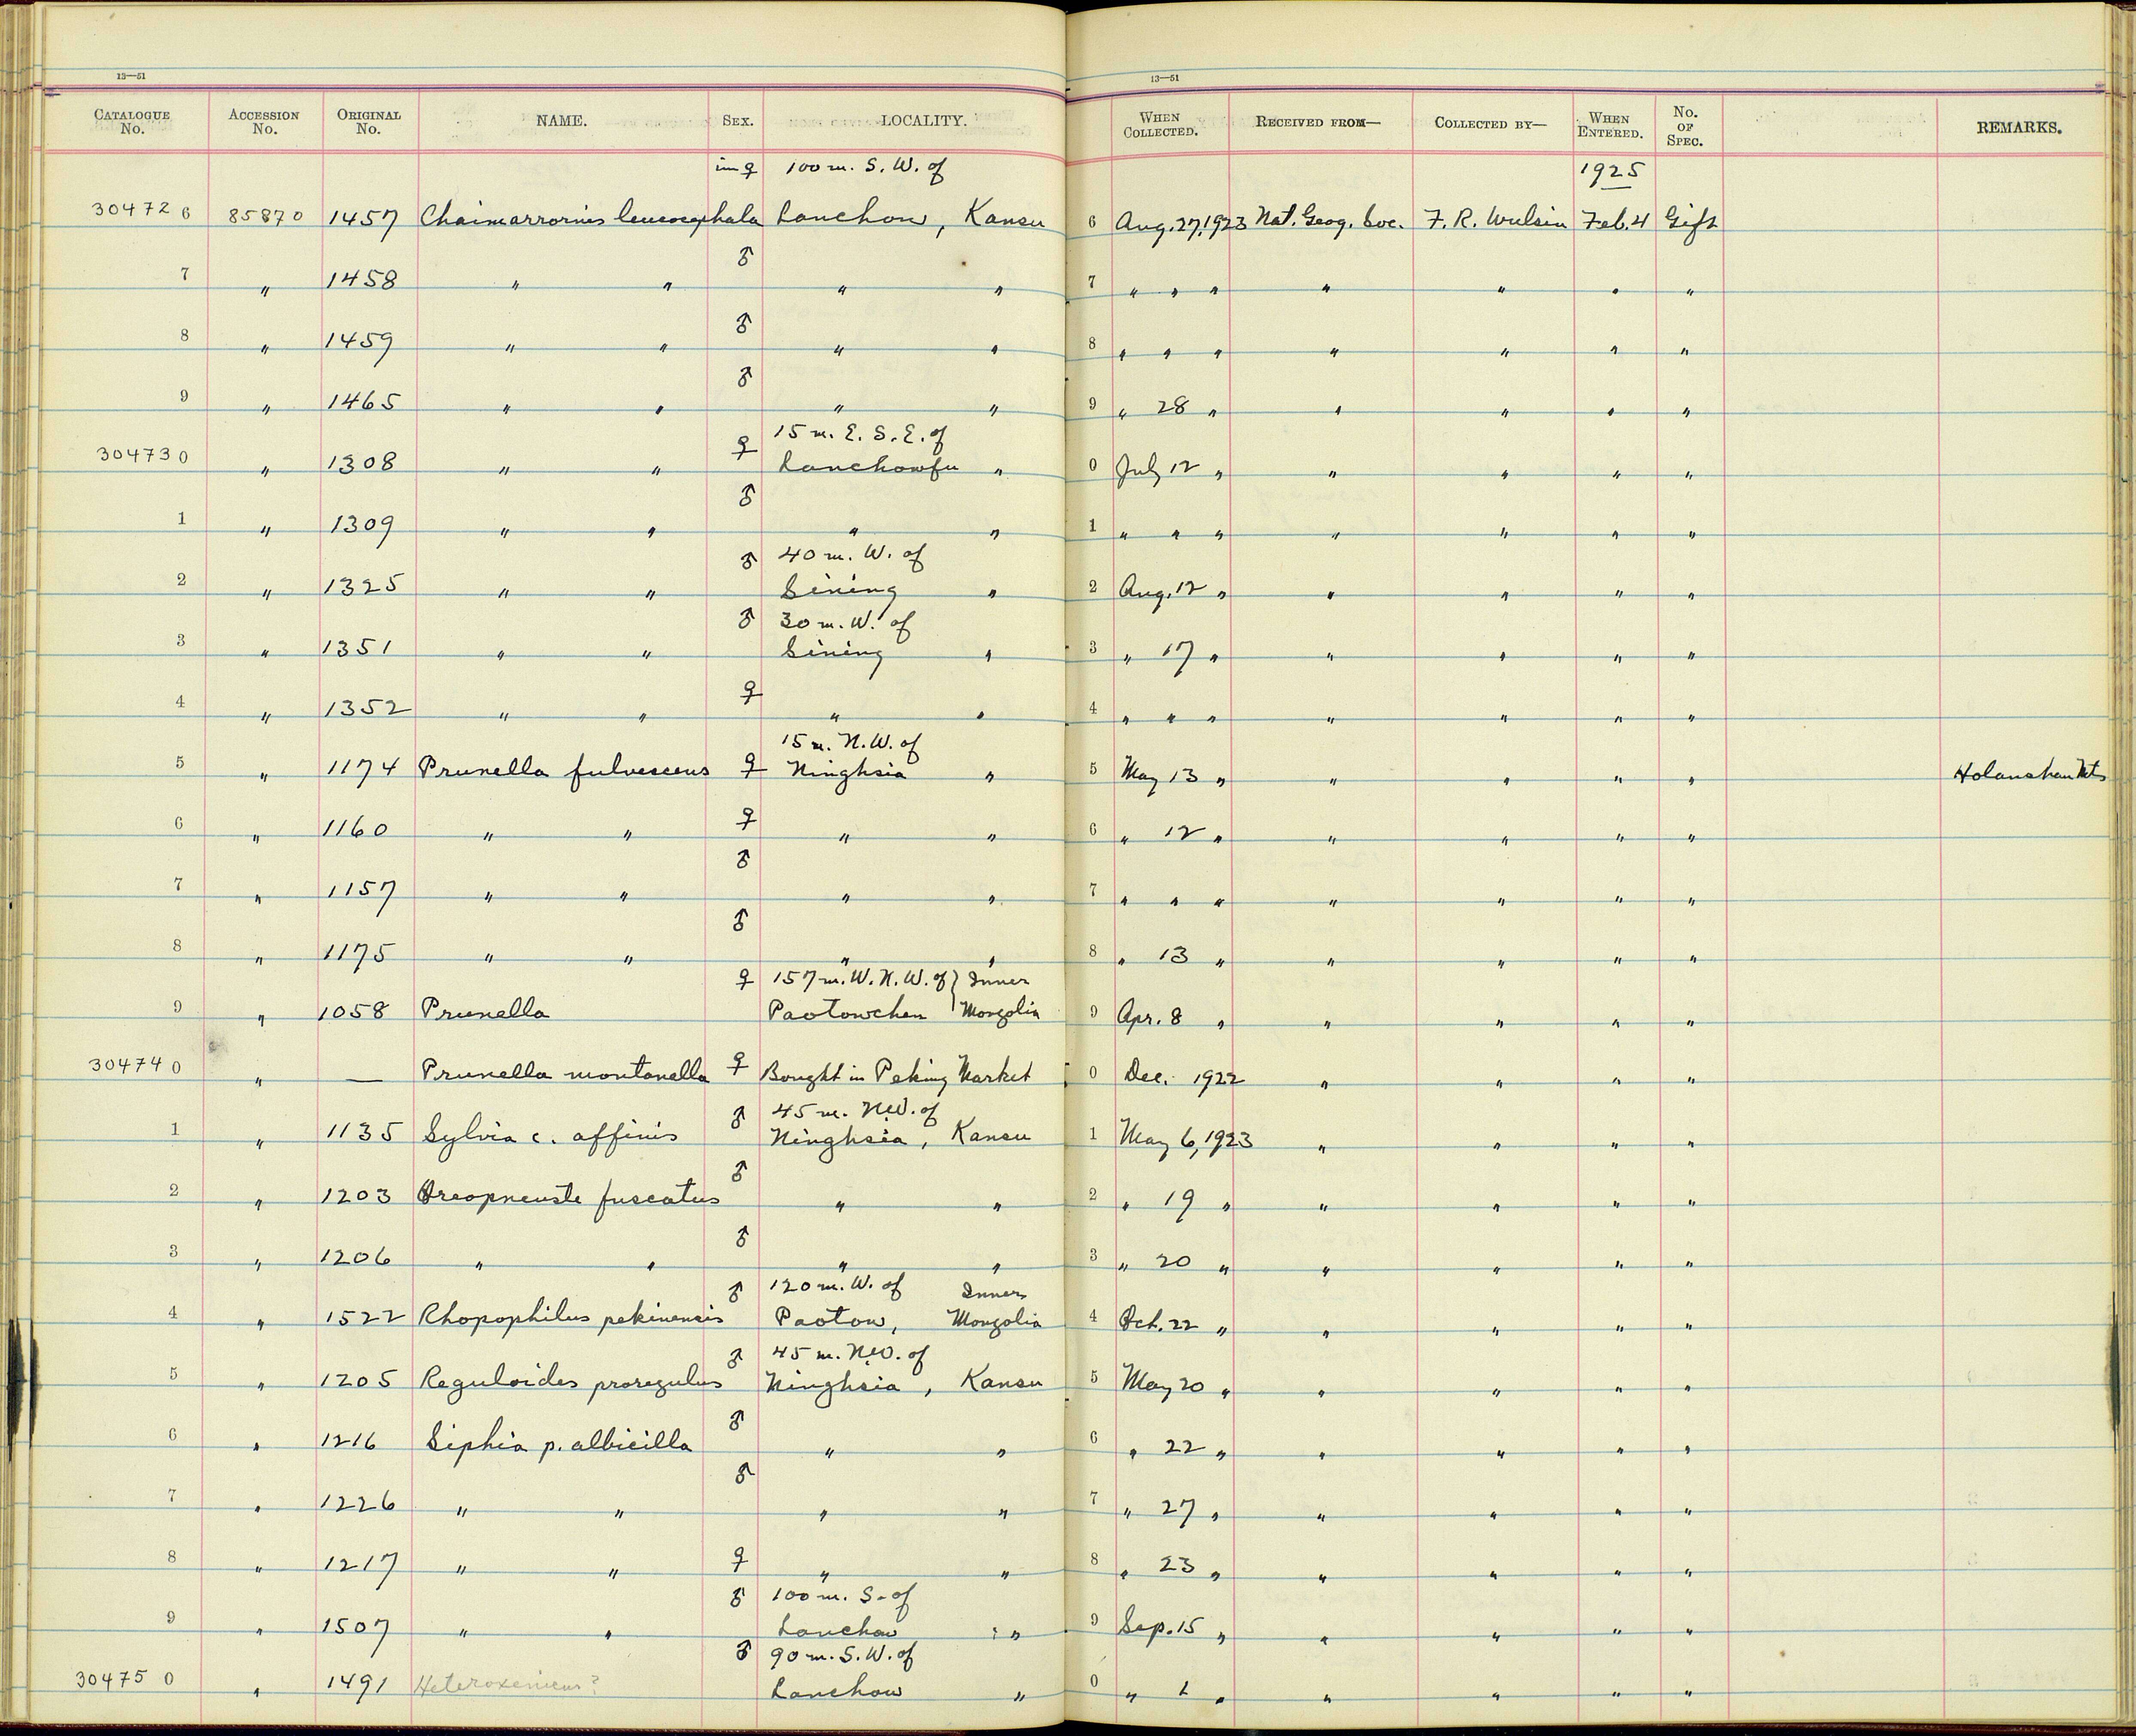 13—51 13—51
CATALOGUE No. ACCESSION No. ORIGINAL No. NAME. SEX. LOCALITY. WHEN COLLECTED. RECEIVED FROM— COLLECTED BY— WHEN ENTERED. No. OF SPEC. REMARKS.
im ♀ 100 m. S. W. of 1925
304726 85870 1457 Chaimarrornis leucocephala Lanchow, Kansu 6 Aug. 27, 1923 Nat. Geog. Soc. F. R. Wulsin Feb. 4 Gift
♂
7 " 1458 " " " " 7 " " " " " " "
♂
8 " 1459 " " " " 8 " " " " " " "
♂
9 " 1465 " " " " 9 " 28 " " " " "
♀ 15 m. E. S. E. of
304730 " 1308 " " Lanchowfu " 0 July 12 " " " " "
♂
1 " 1309 " " " " 1 " " " " " " "
♂ 40 m. W. of
2 " 1325 " " Sining " 2 Aug. 12 " " " " "
♂ 30 m. W. of
3 " 1351 " " Sining " 3 " 17 " " " " "
♀
4 " 1352 " " " " 4 " " " " " " "
15 m. N. W. of
5 " 1174 Prunella fulvescens ♀ Ninghsia " 5 May 13 " " " " " Holanshan Mts
♀
6 " 1160 " " " " 6 " 12 " " " " "
♂
7 " 1157 " " " " 7 " " " " " " "
♂
8 " 1175 " " " " 8 " 13 " " " " "
♀ 157 m. W. N. W. of } Inner
9 " 1058 Prunella Paotowchen Mongolia 9 Apr. 8 " " " " "
304740 " — Prunella montanella ♀ Bought in Peking Market 0 Dec. 1922 " " " "
♂ 45 m. N.W. of
1 " 1135 Sylvia c. affinis Ninghsia, Kansu 1 May 6, 1923 " " " "
♂
2 " 1203 Oreopneuste fuscatus " " 2 " 19 " " " " "
♂
3 " 1206 " " " " 3 " 20 " " " " "
♂ 120 m. W. of Inner
4 " 1522 Rhopophilus pekinensis Paotow, Mongolia 4 Oct. 22 " " " " "
♂ 45 m. N.W. of
5 " 1205 Reguloides proregulus Ninghsia, Kansu 5 May 20 " " " " "
♂
6 " 1216 Siphia p. albicilla " " 6 " 22 " " " " "
♂
7 " 1226 " " " " 7 " 27 " " " " "
8 " 1217 " " ♀ " " 8 " 23 " " " " "
♂ 100 m. S. of
9 " 1507 " " Lanchow " 9 Sep. 15 " " " " "
♂ 90 m. S. W. of
304750 " 1491 Heteroxenicus? Lanchow " 0 " 1 " " " " "